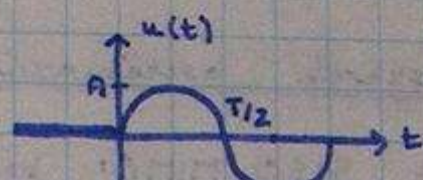 u(t)
A
T/2
t